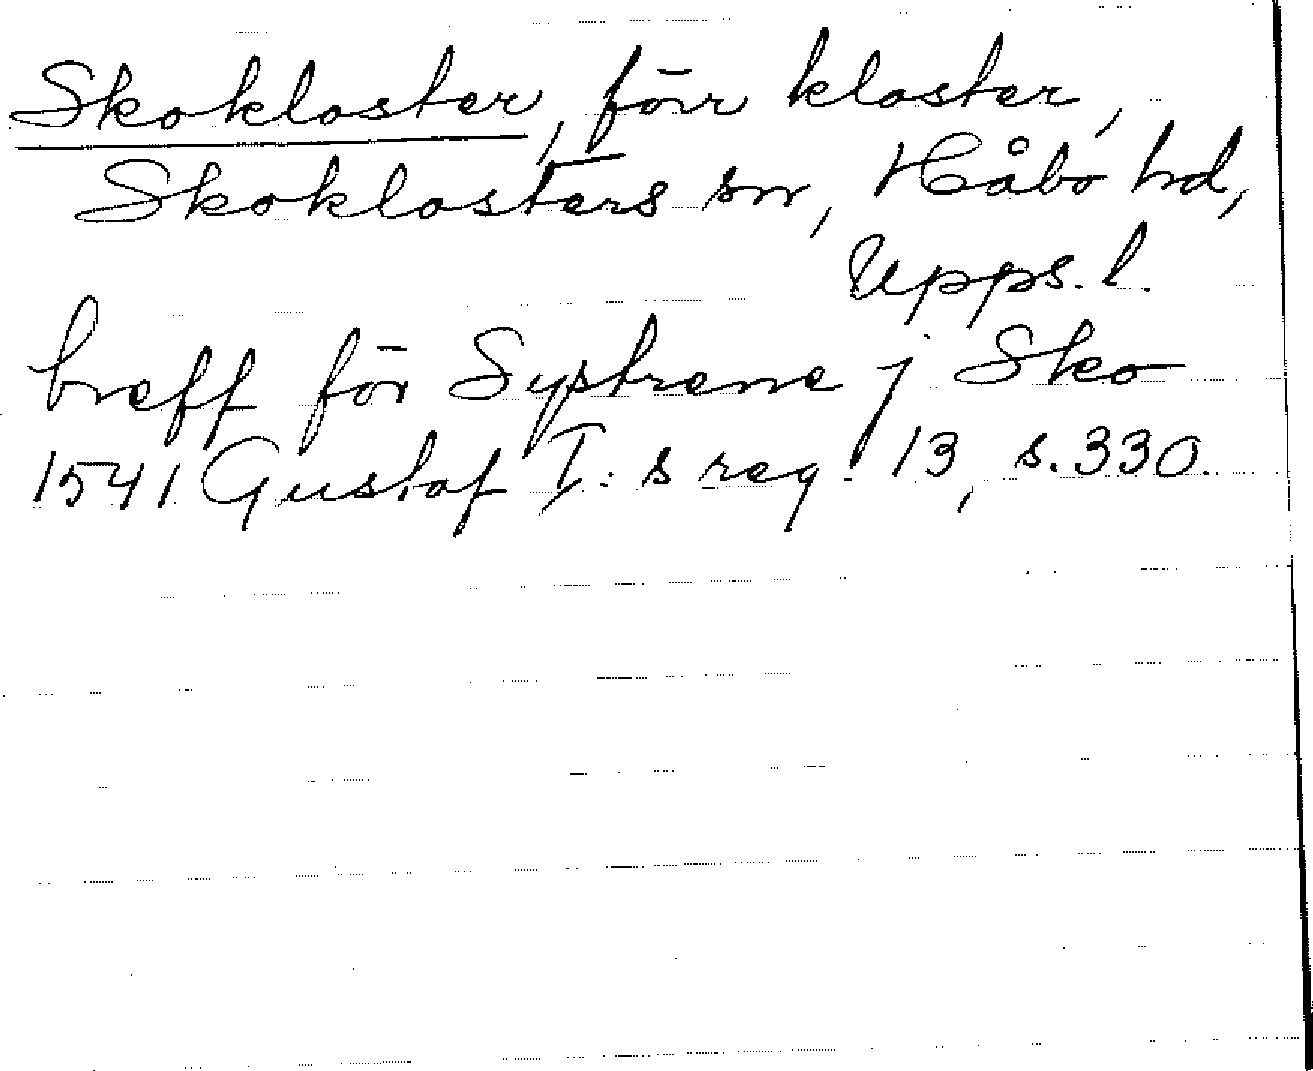 Skokloster, förr kloster,
Skoklosters sn, Håbo hd,
Upps. l.
breff för Systrene j Sko
1541 Gustaf I:s reg. 13, s. 330.